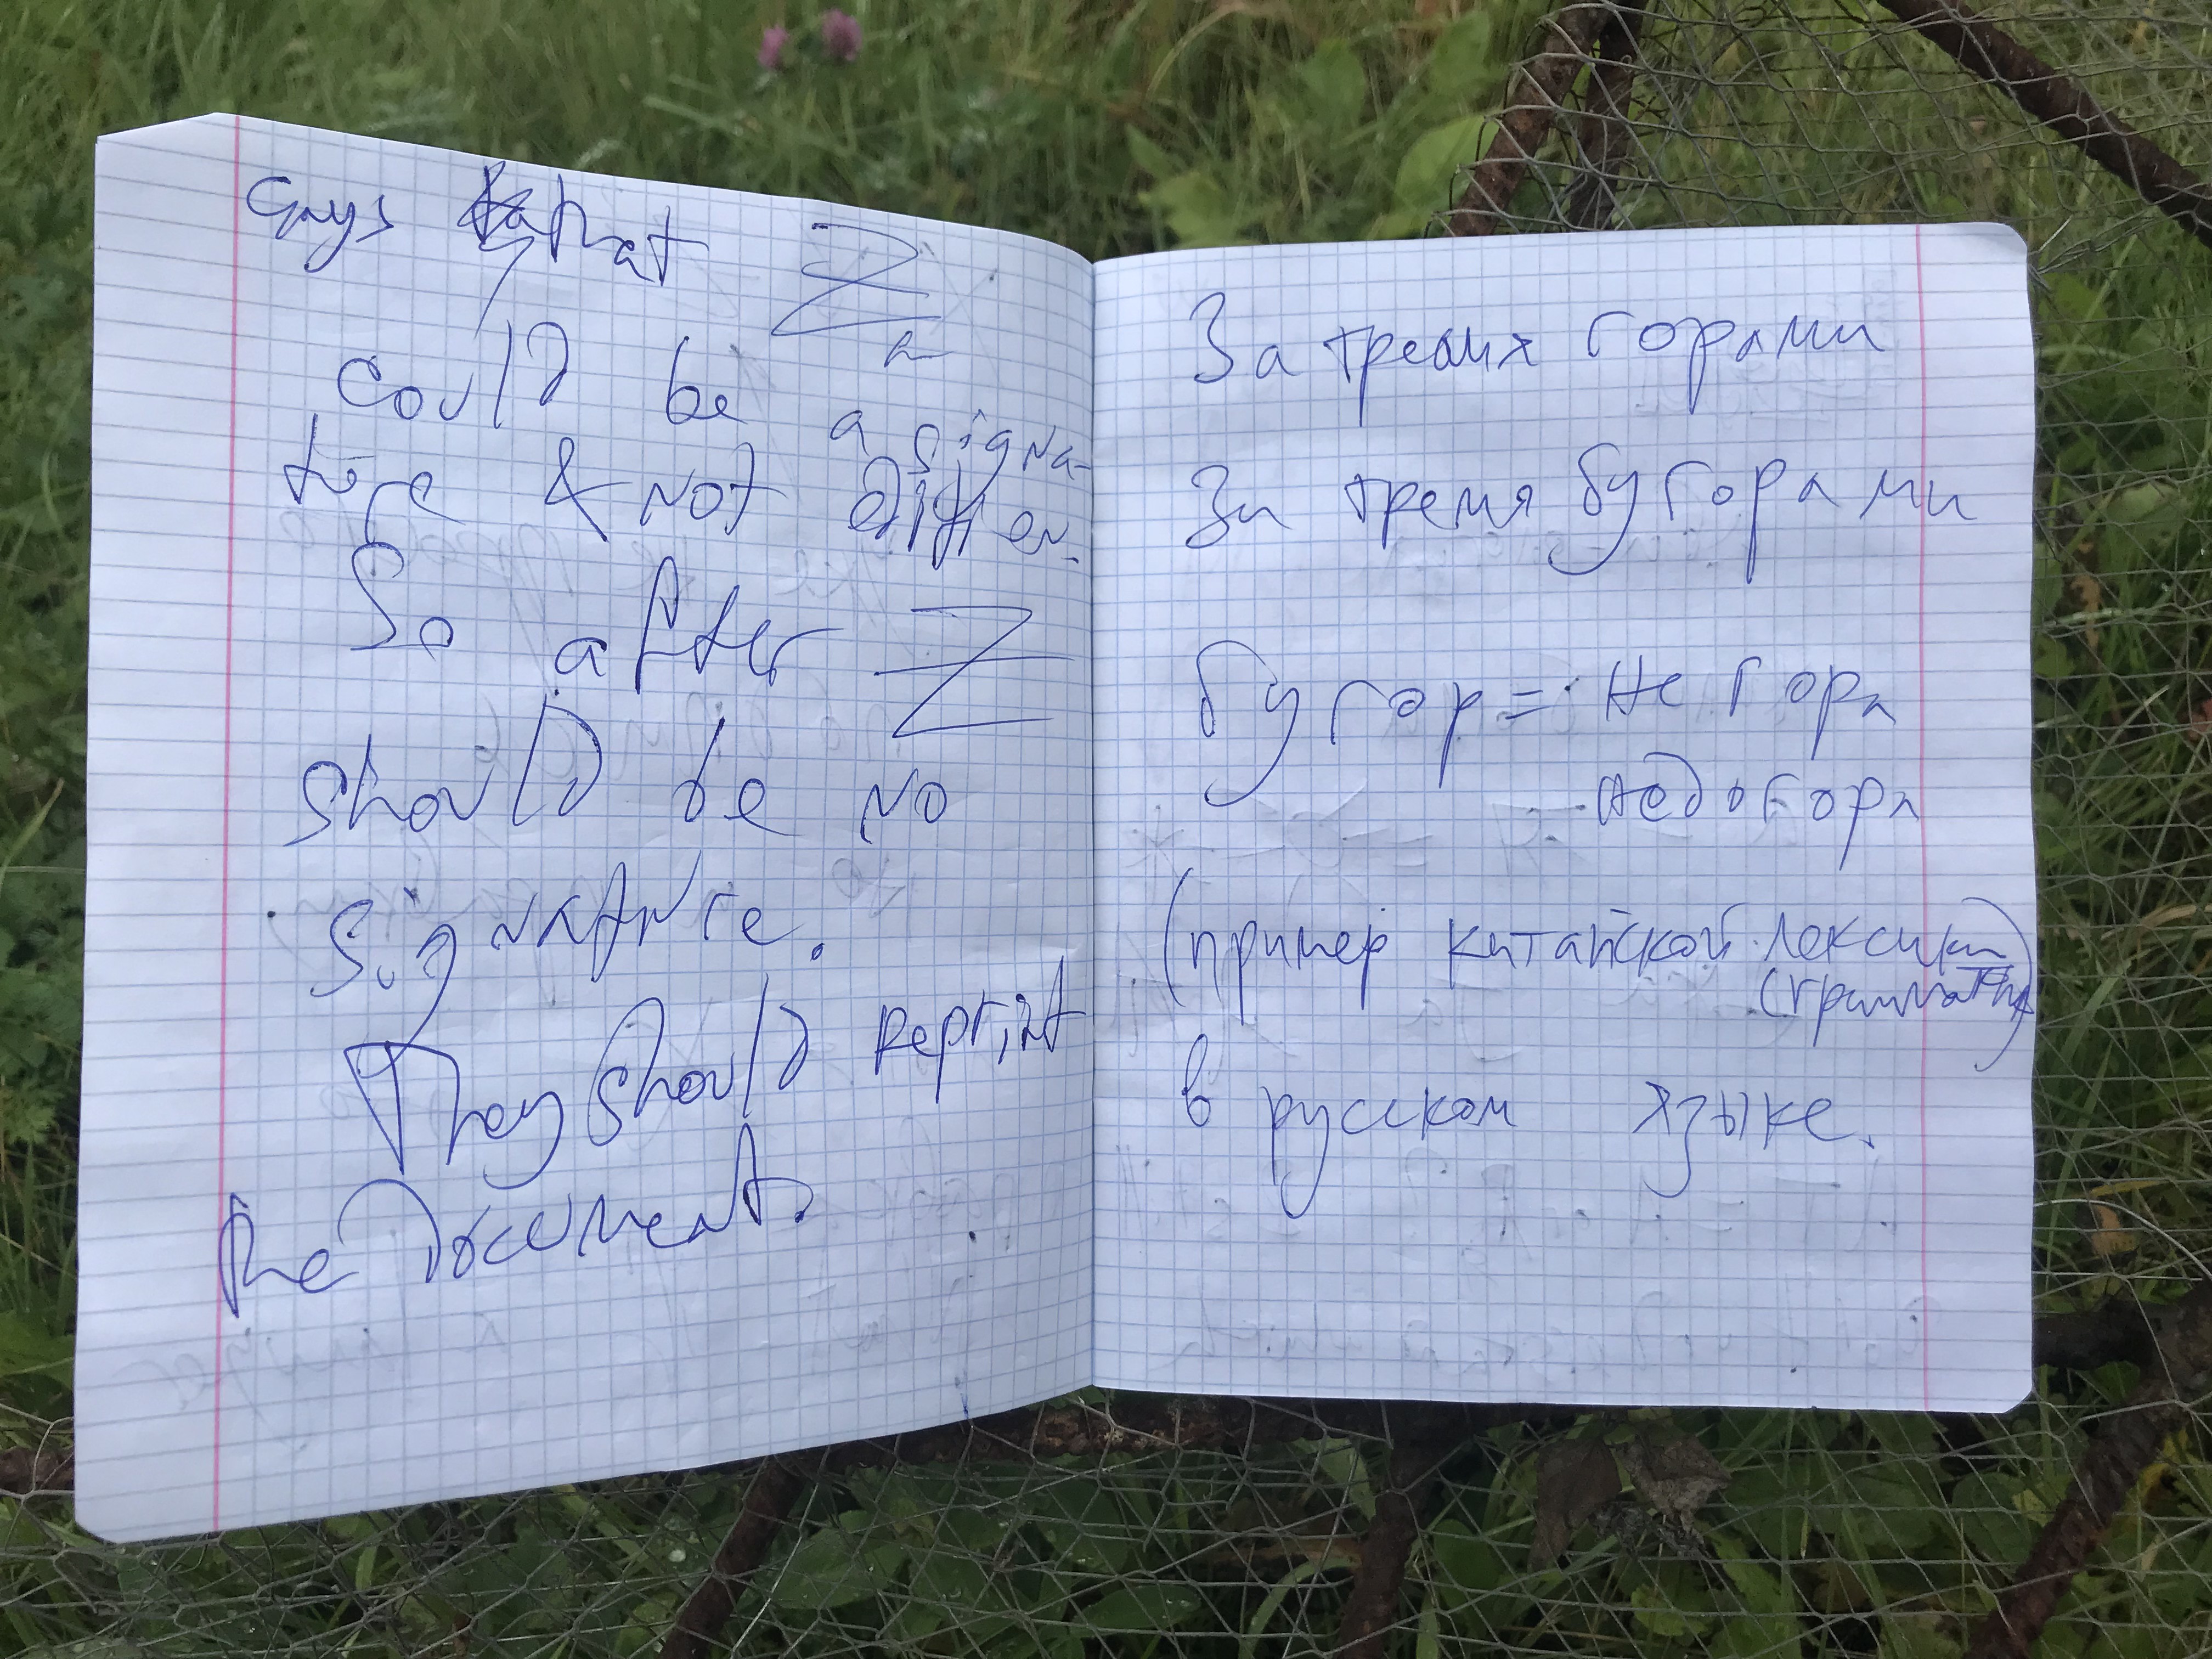 Guys that Z
could be a signa-
ture & not differ
So after Z
should be no
signature.
They should reprint
the document.
За тремя горами
За тремя бугорами
бугор = не гора
недогора
(пример китайской лексики)
(грамматики)
в русском языке.